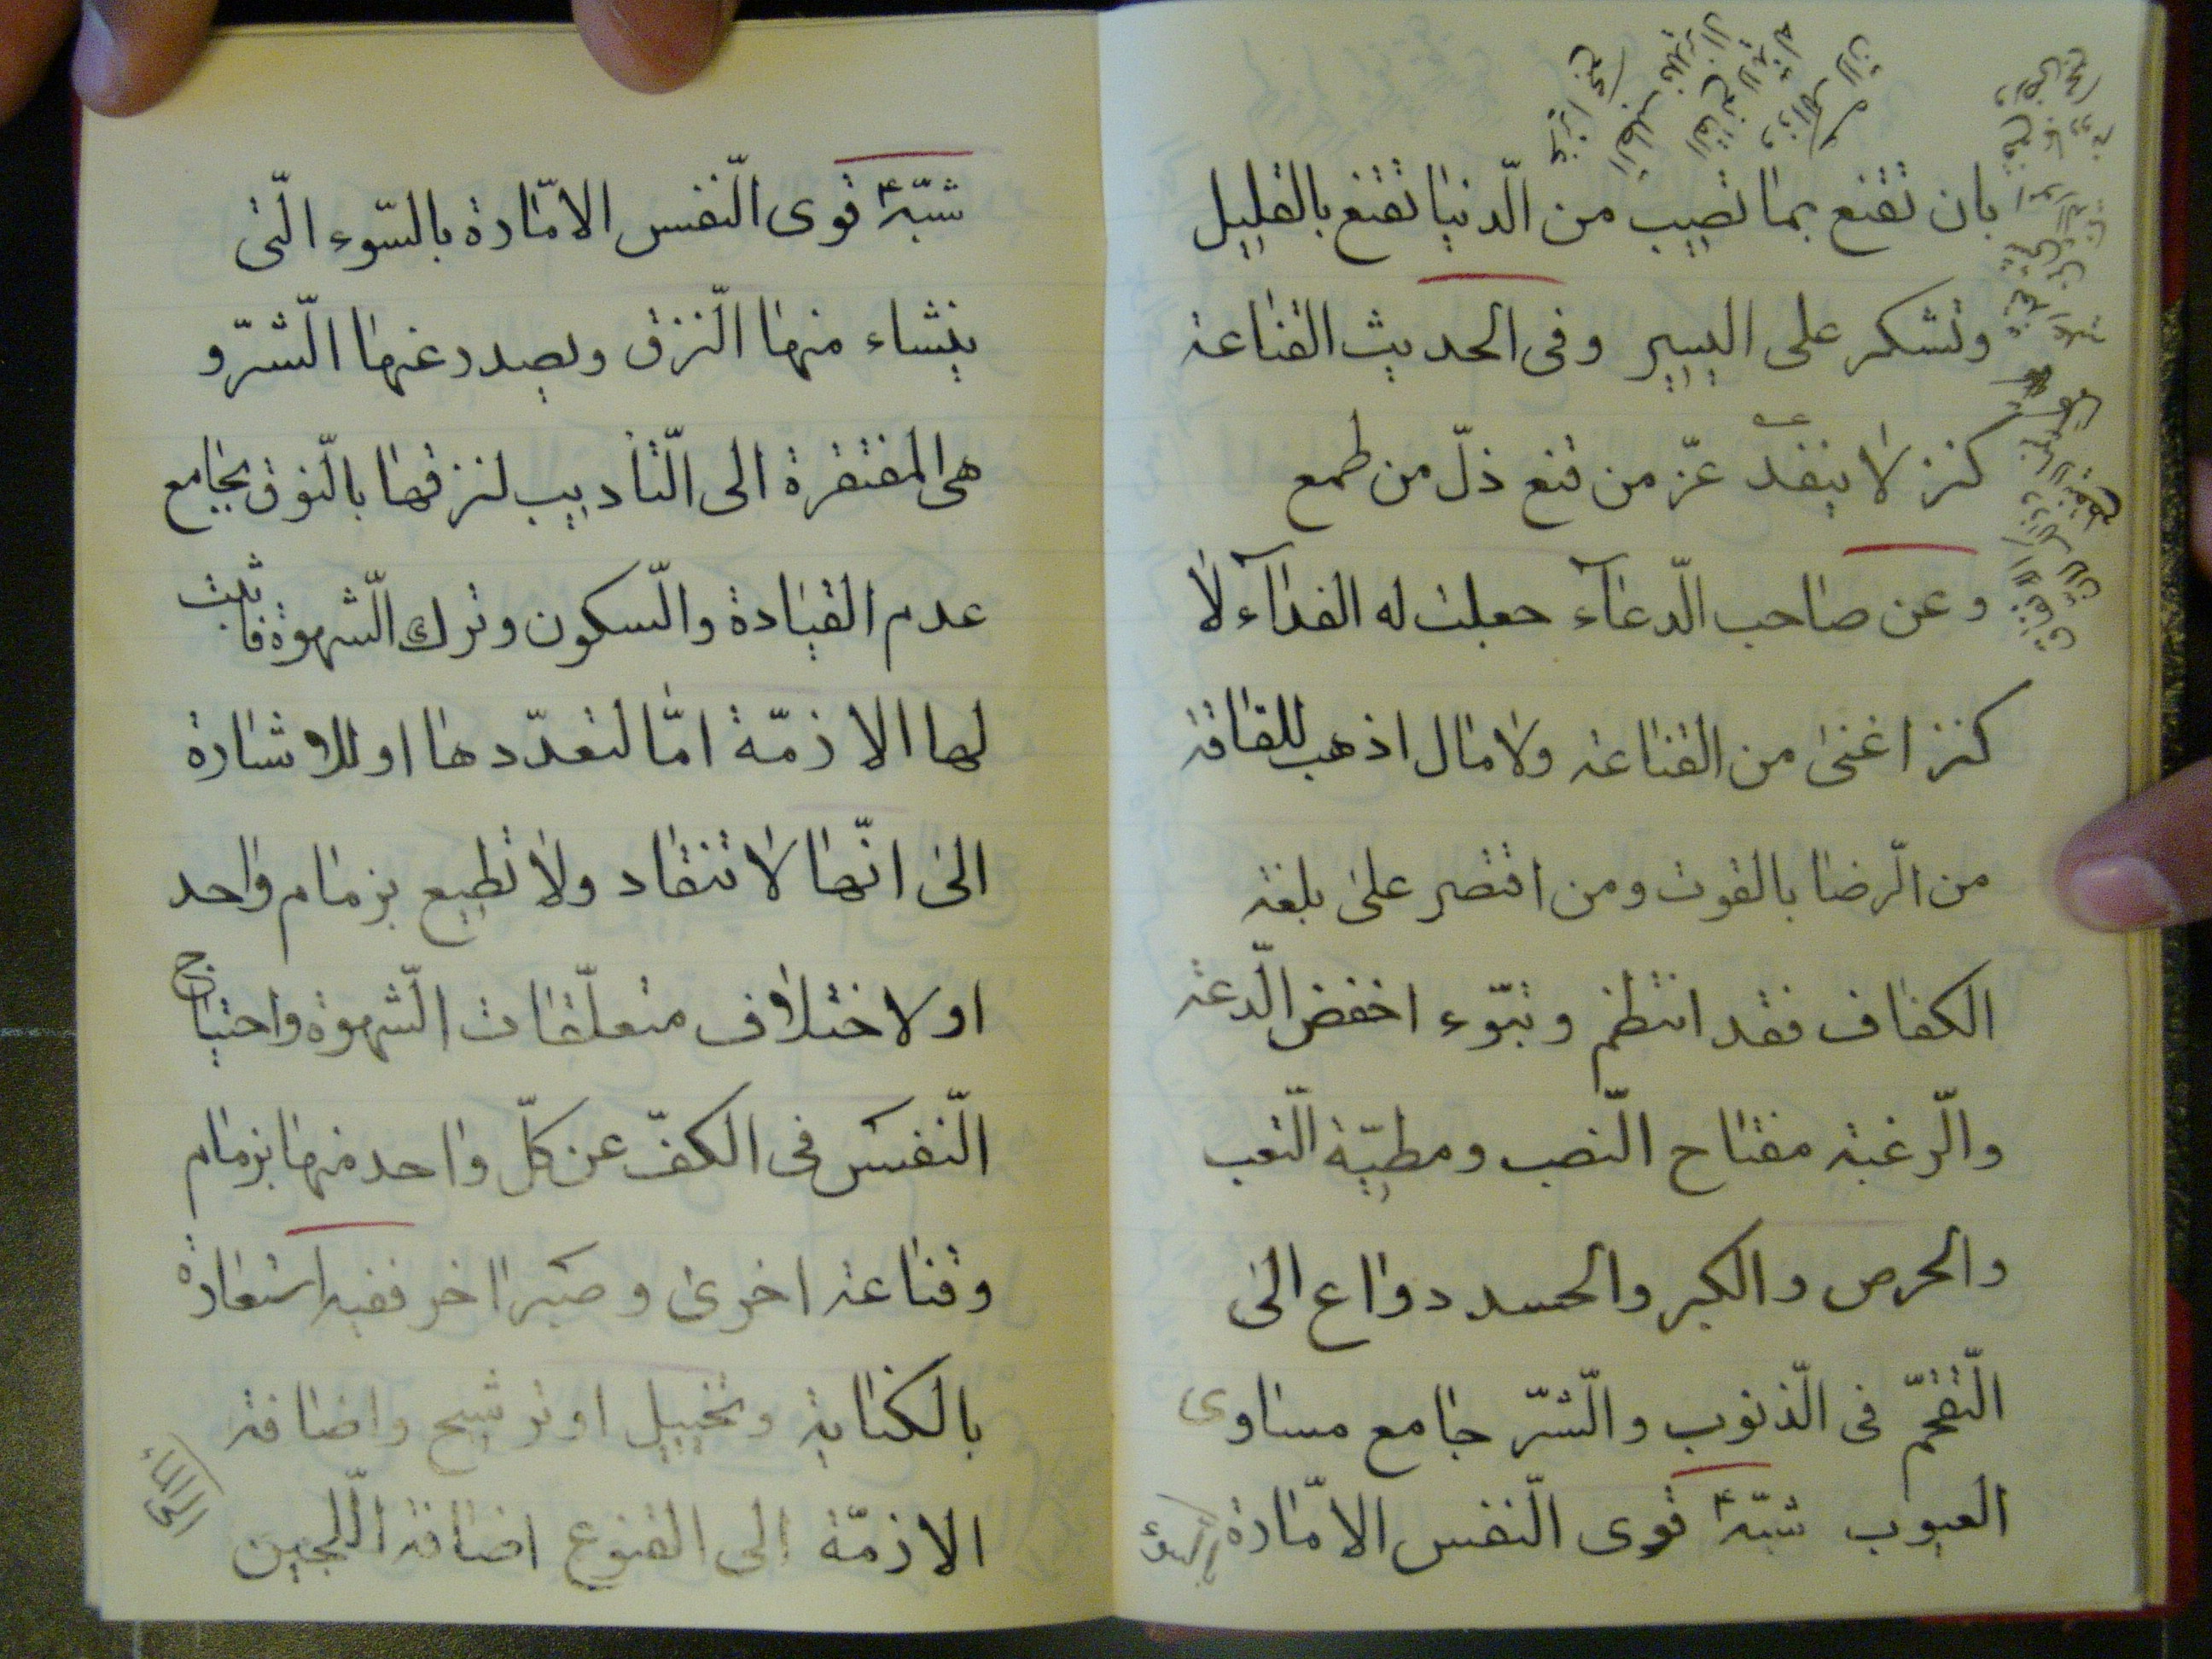 بان تقنع بما تصيب من الّدنيا تقنع بالقليل
وتشكر على اليسير وفى الحديث القناعة
كنز لا ينفد عزّ من قنع ذلّ من طمع
وعن صاحب الّدعآء جعلت له الفدآء لا
كنز اغنى من القناعة ولا مال اذهب للفاقة
من الّرضا بالقوت ومن اقتصر على بلغة
الكفاف فقد انتظم وتبوّء اخفض الّدعة
والّرغبة مفتاح الّنصب ومطيّة الّتعب
والحرص والكبر والحسد دواع الى
الّتقحّم فى الّذنوب والّشرّ جامع مساوى
العيوب شبّه قوى الّنفس الامّارة بالسوء
شبّه قوى الّنفس الامّارة بالسّوء الّتى
ينشاء منها الّنزق ويصدر عنها الّشرّ و
هى المفتقرة الى الّتأديب لنزقها بالّنوق بجامع
عدم القيادة والّسكون وترك الّشهوة فاثبت
لها الازمّة امّا لتعدّدها او للاشارة
الى انّها لا تنقاد ولا تطيع بزمام واحد
او لاختلاف متعلّقات الّشهوة واحتياج
الّنفس فى الكفّ عن كلّ واحد منها بزمام
وقناعة اخرى وصبر اخر ففيه استعارة
بالكناية وتخييل او ترشيح واضافة
الازمّة الى القنوع اضافة الّلجين
الى الماء